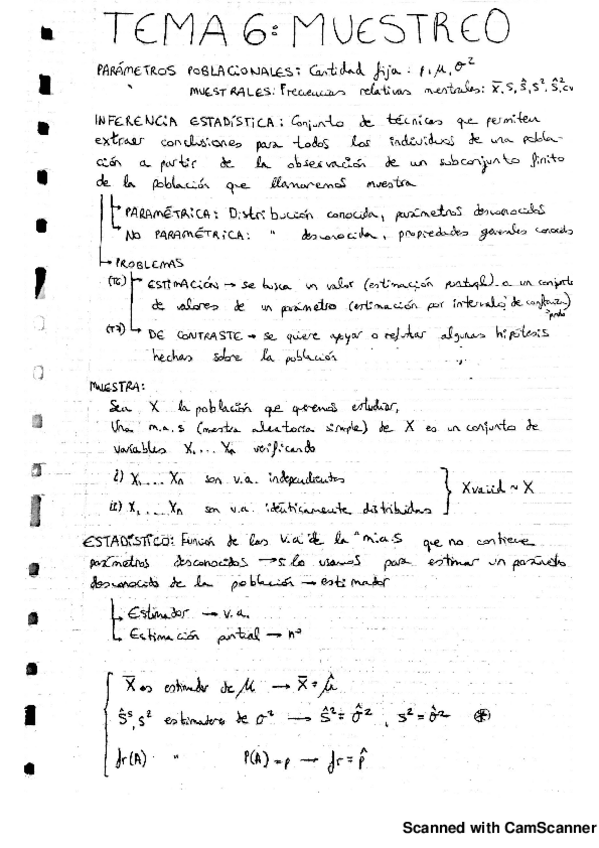 TEMA 6: MUESTREO
PARÁMETROS POBLACIONALES: Cantidad fija: p, μ, σ²
" MUESTRALES: Frecuencias relativas mestrales: x̄, S, Ŝ, S², Ŝ², cv
INFERENCIA ESTADÍSTICA: Conjunto de técnicas que permiten
extraer conclusiones para todos los individuos de una pobla-
ción a partir de la observación de un subconjunto finito
de la población que llamaremos muestra
PARAMÉTRICA: Distribución conocida, parámetros desconocidos
NO PARAMÉTRICA: " desconocida, propiedades generales conocidas
PROBLEMAS
(T6) ESTIMACIÓN → se busca un valor (estimación puntual) o un conjunto
de valores de un parámetro (estimación por intervalo de confianza)
(T7) DE CONTRASTE → se quiere apoyar o refutar algunas hipótesis
hechas sobre la población
MUESTRA:
Sea X la población que queremos estudiar,
Una m.a.s (mestra aleatoria simple) de X es un conjunto de
variables X1, ... Xn verificando
i) X1, ... Xn son v.a. independientes
ii) X1, ... Xn son v.a. idénticamente distribuidas } X v.a.iid ~ X
ESTADÍSTICO: Función de las v.a de la m.a.s que no contiene
parámetros desconocidos → si lo usamos para estimar un parámetro
desconocido de la población → estimador
Estimador → v.a.
Estimación puntual → nº
X̄ es estimador de μ → X̄ = μ̂
Ŝ², S² estimadores de σ² → Ŝ² = σ̂², S² = σ̂² ⊛
fr(A) " P(A) = p → fr = p̂
Scanned with CamScanner